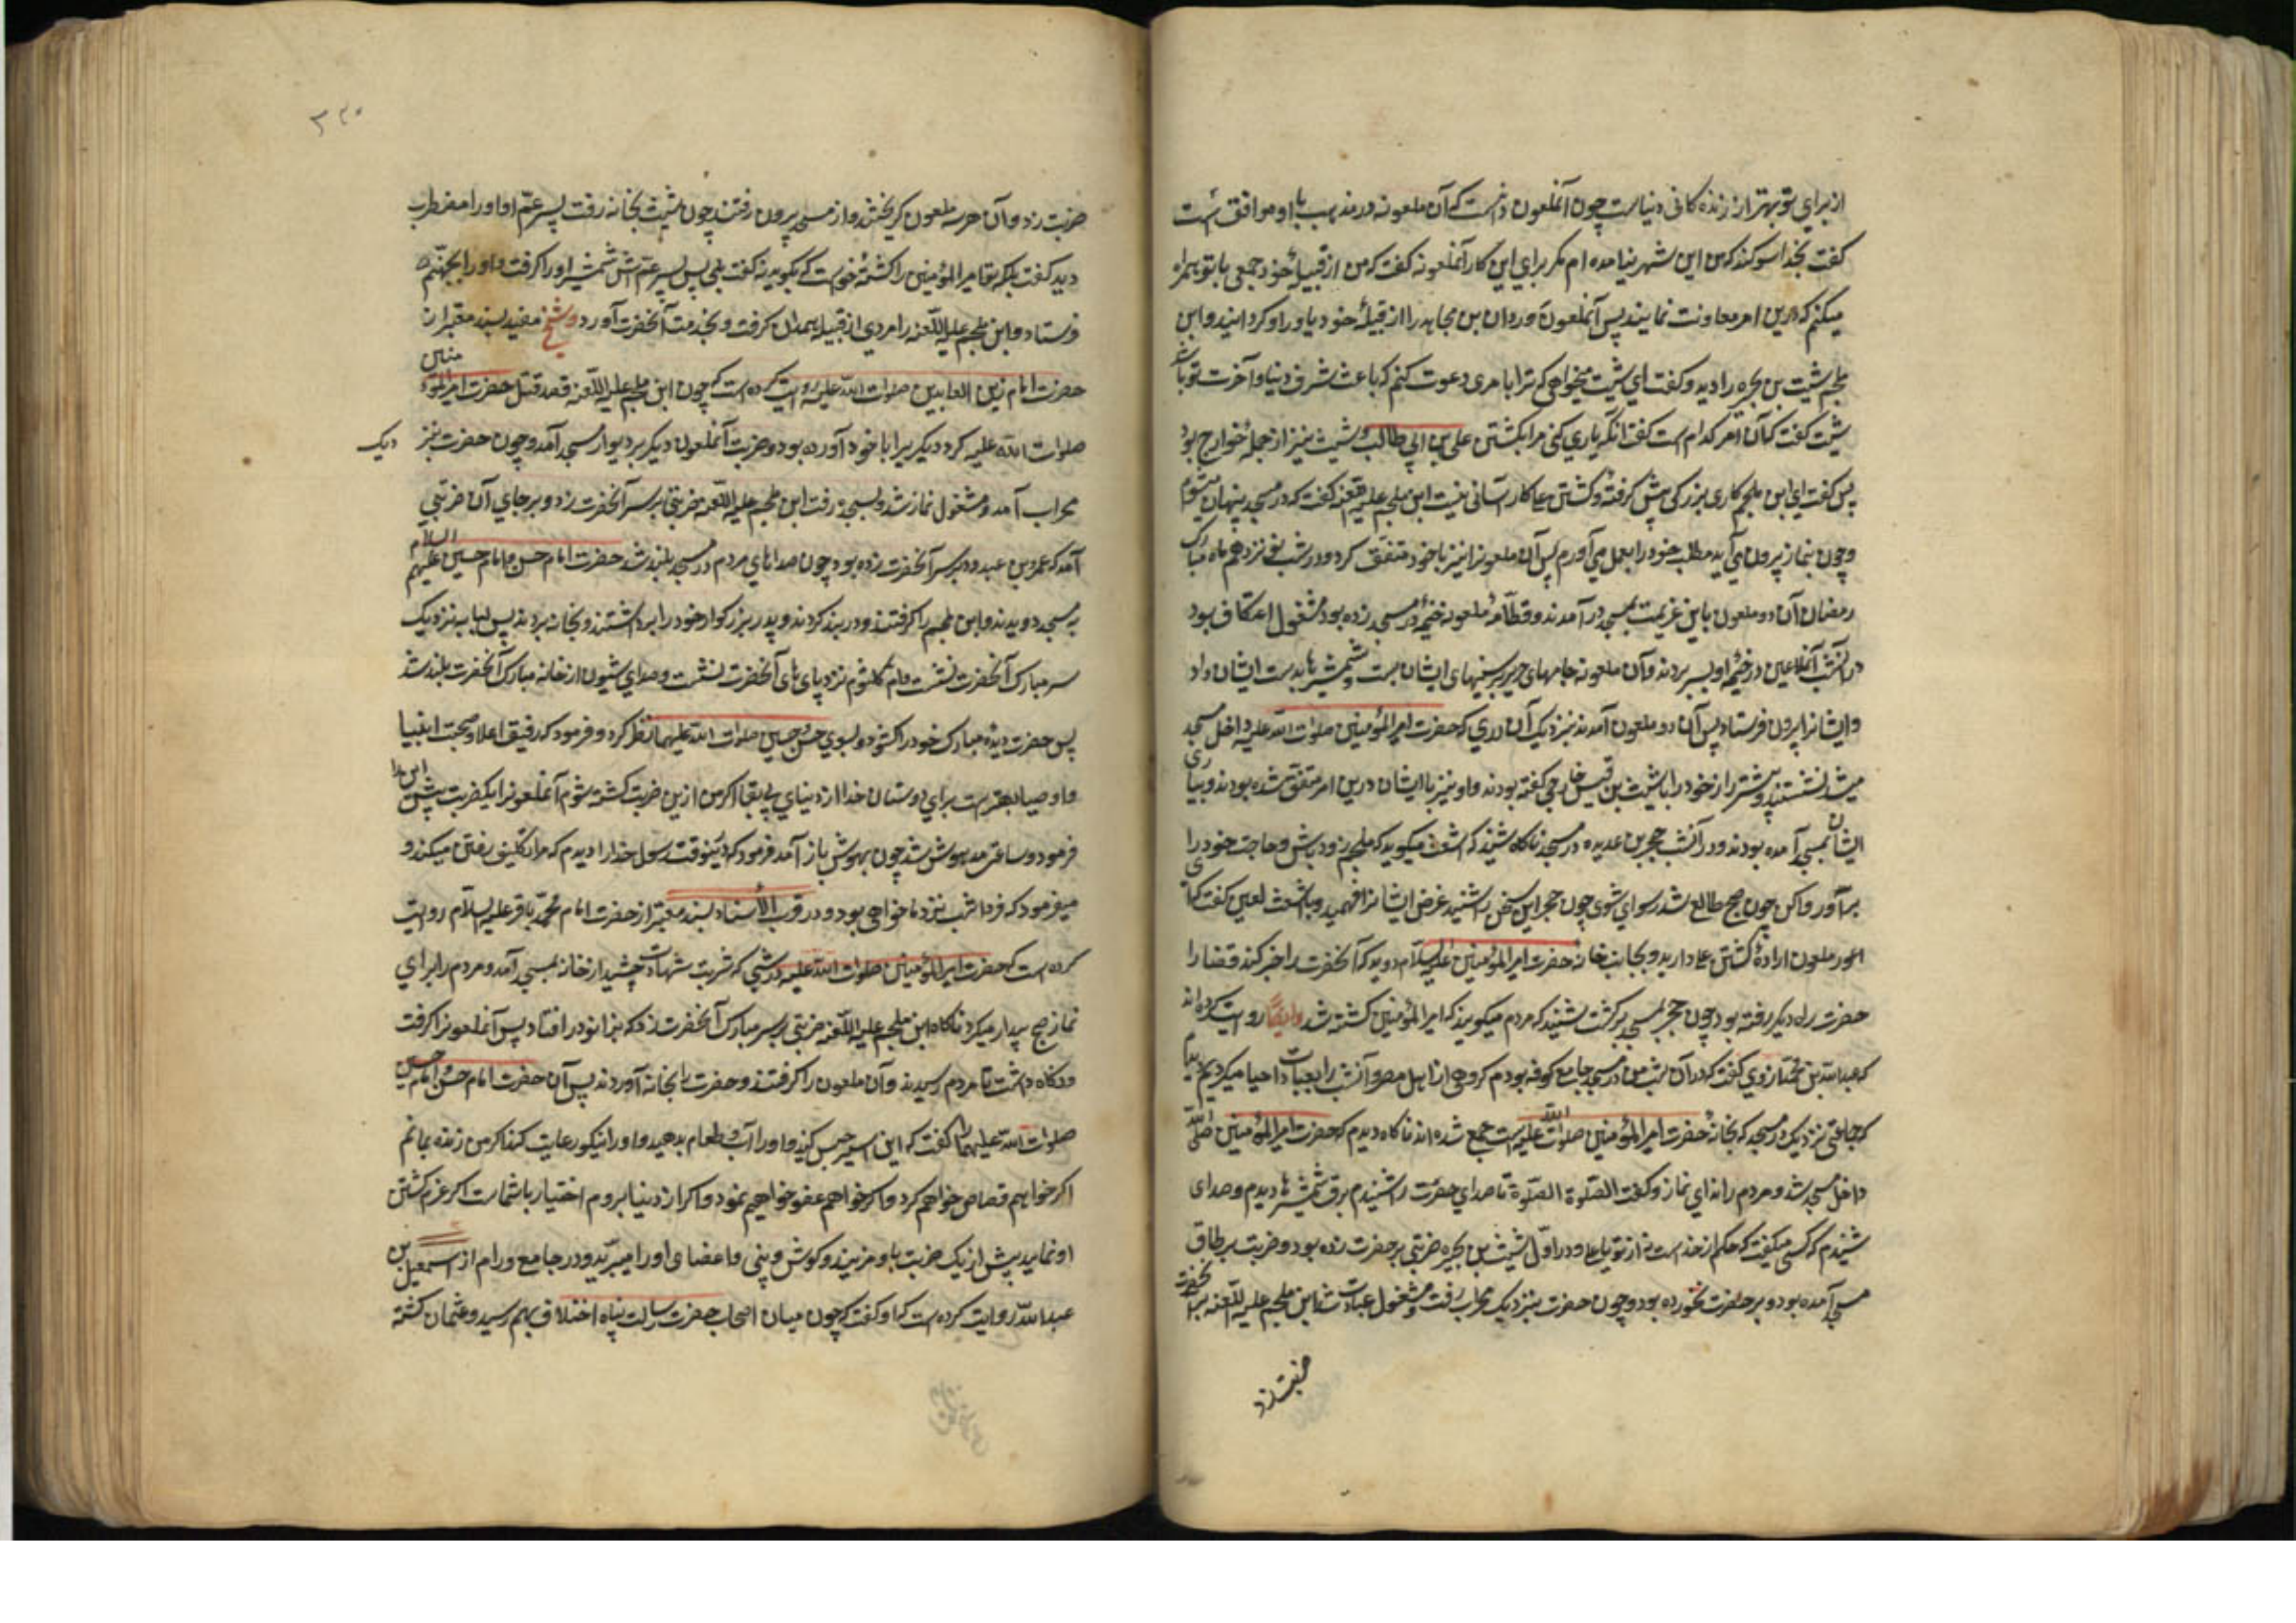 از برای تو بهتر از زنده کانی دنیاست چون آنملعون دانست که آن ملعونه در مذهب با او موافق است
گفت بخدا سوکند که من این شهر نیامده ام مکر برای این کار آنملعونه گفت که من از قبیلهٔ خود جمعی با تو همراه
میکنم که درین امر معاونت نمایند پس آنملعونه وردان بن مجاهد را از قبیلهٔ خود یاور او کردانید و ابن
ملجم شبیث بن بجره را دید و گفت ای شبیث میخواهی که ترا بامری دعوت کنم که باعث شرف دنیا و آخرت تو باشد
شبیث گفت که آن امر کدام است گفت آنکه یاری کنی مرا بکشتن علی بن ابی طالب و شبیث نیز از جملهٔ خوارج بود
پس گفت ای ابن ملجم کاری بزرکی پیش کرفتهٔ و کشتن علی کار آسانی نیست ابن ملجم علیه اللعنه گفت که در مسجد پنهان میشویم
و چون بنماز بیرون می آید مطلب خود را بعمل می آورم پس آن ملعون را نیز با خود متفق کرد و در شب نوزدهم ماه مبارک
رمضان آن دو ملعون باین عزیمت بمسجد در آمدند و قطامهٔ ملعونه خیمه در مسجد زده بود و مشغول اعتکاف بود
در آنشب آنملاعین در خیمهٔ او بسر بردند و آن ملعونه جامهای حریر بر سینهای ایشان بست و شمشیرها بدست ایشان داد
و ایشانرا بیرون فرستاد پس آن دو ملعون آمدند نزدیک آن دری که حضرت امیر المؤمنین صلوات الله علیه داخل مسجد
میشد نشستند و پیشتر راز خود را با شعث بن قیس خارجی گفته بودند و او نیز با ایشان درین امر متفق شده بودند و بیاری
ایشان بمسجد آمده بودند و در آنشب حجر بن عدی در مسجد ناکاه شنید که اشعث میکوید که ملجم زود باش و حاجت خود را
برآور و اکر نه چون صبح طالع شد رسوای شوی چون حجر این سخن را شنید غرض ایشانرا فهمید و باشعث لعین گفت که ای
اعور ملعون ارادهٔ کشتن علی دارید و بجانب خانهٔ حضرت امیر المؤمنین علیه السلام دوید که آنحضرت را خبر کند قضا را
حضرت راه دیکر رفته بود چون حجر بمسجد برکشت شنید که مردم میکویند که امیر المؤمنین کشته شد و ایضاً روایت کرده اند
که عبد الله بن محمد ازدی گفت که در آن شب من در مسجد جامع کوفه بودم کروهی از اهل مصر و آنشب را بعبادت احیا میکردیم دیدم
که جماعتی نزدیک در مسجد که بخانهٔ حضرت امیر المؤمنین صلوات الله علیه است جمع شده اند ناکاه دیدم که حضرت امیر المؤمنین صلی الله
داخل مسجد شد و مردم را ندای نماز و گفت الصلوة الصلوة تا صدای حضرت را شنیدم برق شمشیرها دیدم و صدای
شنیدم که کسی میکفت که حکم از خداست نه از تو یا علی و در اول شبیث بن بجیره ضربتی بر حضرت زده بود و ضربت بر طاق
مسجد آمده بود و بر حضرت نخورده بود و چون حضرت بنزدیک محراب رفت و مشغول عبادت شد ابن ملجم علیه اللعنه بر آنحضرت
ضربت زد
۳۲۰
ضربت زد و آن هر سه ملعون کریختند و از مسجد بیرون رفتند چون شبیث بخانه رفت پسر عم او او را مضطرب
دید گفت بلکه تو امیر المؤمنین را کشتهٔ خواست که بکوید نه گفت بلی پس پسر عمش شمشیر او را کرفت و او را بجهنم
فرستاد و ابن ملجم علیه اللعنه را مردی از قبیلهٔ همدان کرفت و بخدمت آنحضرت آورد و شیخ مفید بسند معتبر از
حضرت امام زین العابدین صلوات الله علیه روایت کرده است که چون ابن ملجم علیه اللعنه قصد قتل حضرت امیر المؤمنین
صلوات الله علیه کرد دیکریرا با خود آورده بود و ضربت آنملعون دیکر بر دیوار مسجد آمد و چون حضرت بنز دیک
محراب آمد و مشغول نماز شد و بسجده رفت ابن ملجم علیه اللعنه ضربتی بر سر آنحضرت زد و بر جای آن ضربتی
آمد که عمرو بن عبد ود بر سر آنحضرت زده بود چون صداهای مردم در مسجد بلند شد حضرت امام حسن و امام حسین علیهم السلام
بمسجد دویدند و ابن ملجم را کرفتند و در بند کردند و پدر بزرکوار خود را برداشتند و بخانه بردند پس لبابه نزدیک
سر مبارک آنحضرت نشست و ام کلثوم نزد پای های آنحضرت نشست و صدای شیون از خانه مبارک آنحضرت بلند شد
پس حضرت دیدهٔ مبارک خود را کشود و بسوی حسن و حسین صلوات الله علیهما نظر کرد و فرمود که رفیق اعلا و صحبت انبیا
و اوصیا بهتر است برای دوستان خدا از دنیای بی بقا اکر من ازین ضربت کشته شوم آنملعونرا یکضربت بیش این را
فرمود و ساعتی مدهوش شد چون بهوش باز آمد فرمود که اینوقت رسول خدا را دیدم که مرا تکلیف رفتن میکند و
میفرمود که فردا شب نزد ما خواهی بود و در قرب الأسناد بسند معتبر از حضرت امام محمد باقر علیه السلام روایت
کرده است که حضرت امیر المؤمنین صلوات الله علیه در شبی که شربت شهادت چشید از خانه بمسجد آمد و مردم را برای
نماز صبح بیدار میکرد ناکاه ابن ملجم علیه اللعنه ضربتی بر سر مبارک آنحضرت زد که بزانو در افتاد پس آنملعونرا کرفت
و نکاه داشت تا مردم رسیدند و آن ملعون را کرفتند و حضرت را بخانه آوردند پس آن حضرت امام حسن و امام حسین
صلوات الله علیهما را گفت که این اسیر حبس کنید و او را آب و طعام بدهید و او را نیکو رعایت کنید اکر من زنده بمانم
اکر خواهم قصاص خواهم کرد و اکر خواهم عفو خواهم نمود و اکر از دنیا بروم اختیار با شماست اکر عزم کشتن
او نمایید بیش از یک ضربت باو مزنید و کوش و بینی و اعضای او را مبرید و در جامع ورام از اسمعیل بن
عبد الله روایت کرده است که او گفت که چون میان اصحاب حضرت رسالت پناه اختلاف بهم رسید و عثمان کشته